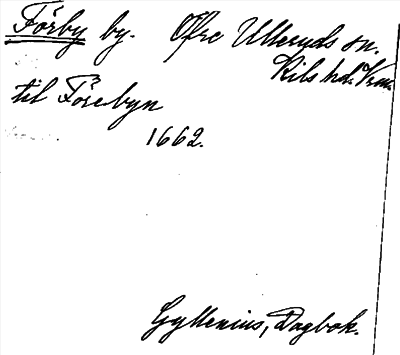 Förby by. Öfre Ulleruds sn.
Kils hd. Vrm.
til Förebyn
1662.
Gyllenius, Dagbok.